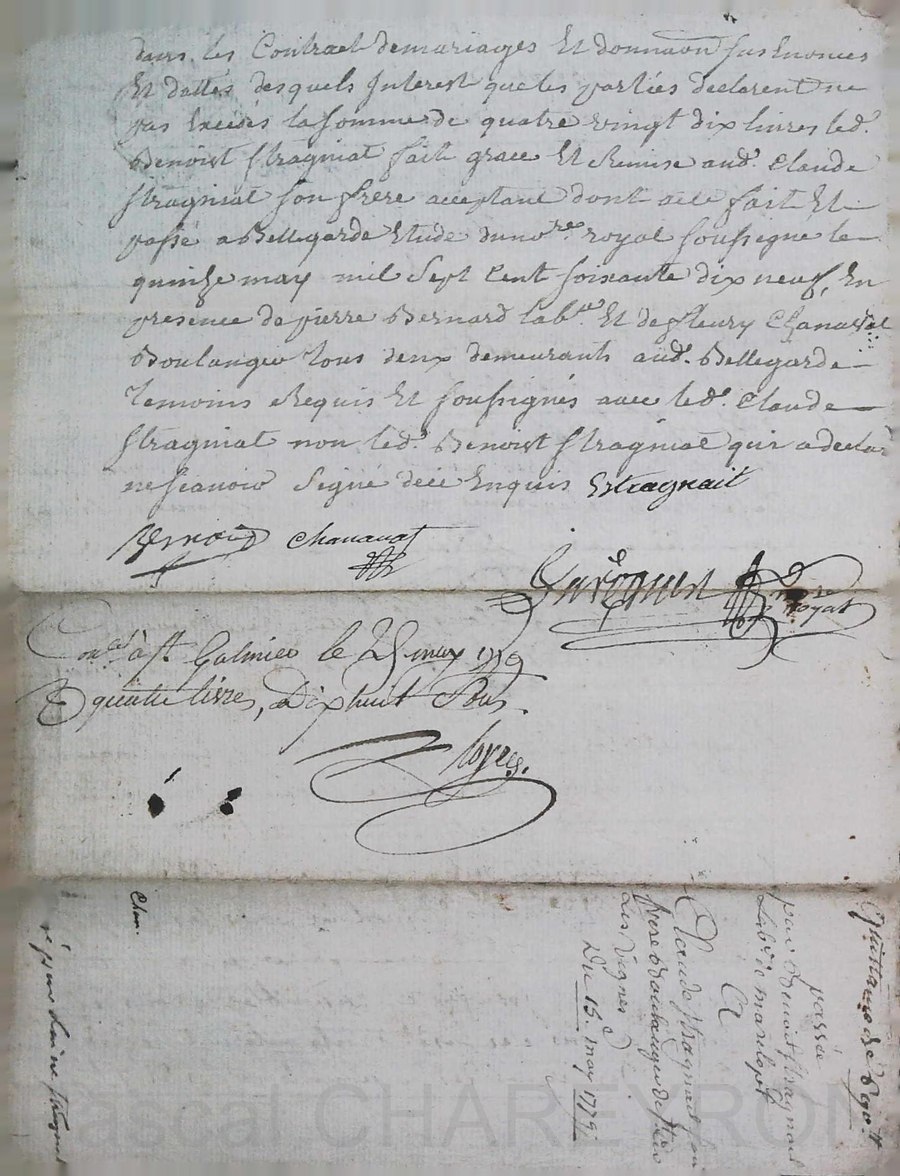 dans les Contract de mariages Et donnaon sus Enoncés
Et dattés desquels Interest que les parties declarent ne
pas Excedés la somme de quatre vingt dix livres led.
Benoist Stragniat fait grace Et Remise aud. Claude
Stragniat son frere acceptant dont acte fait Et
passé a Bellegarde Etude du no.re royal soussigne le
quinze may mil sept Cent soixante dix neuf, En
presence de pierre Bernard lab.r Et de fleury Chanavat
Boulanger tous deux demeurants aud. Bellegarde
temoins Requis Et soussignés avec led. Claude
Stragniat non led. Benoist Stragniat qui a declaré
ne scavoir signé de ce Enquis Estragnait
Bernard Chanavat
no.re royal
Con.lé à S.t Galmier le 25 may 1779
quatre livres, Dix huit Sous
Quittance de
passée
par Benoit Stragnait
Lab.r de
A
Claude Stragnait son
frere Boulanger de
Les Vignes
Du 15. may 1779
Chan.
Pascal CHAREYRON